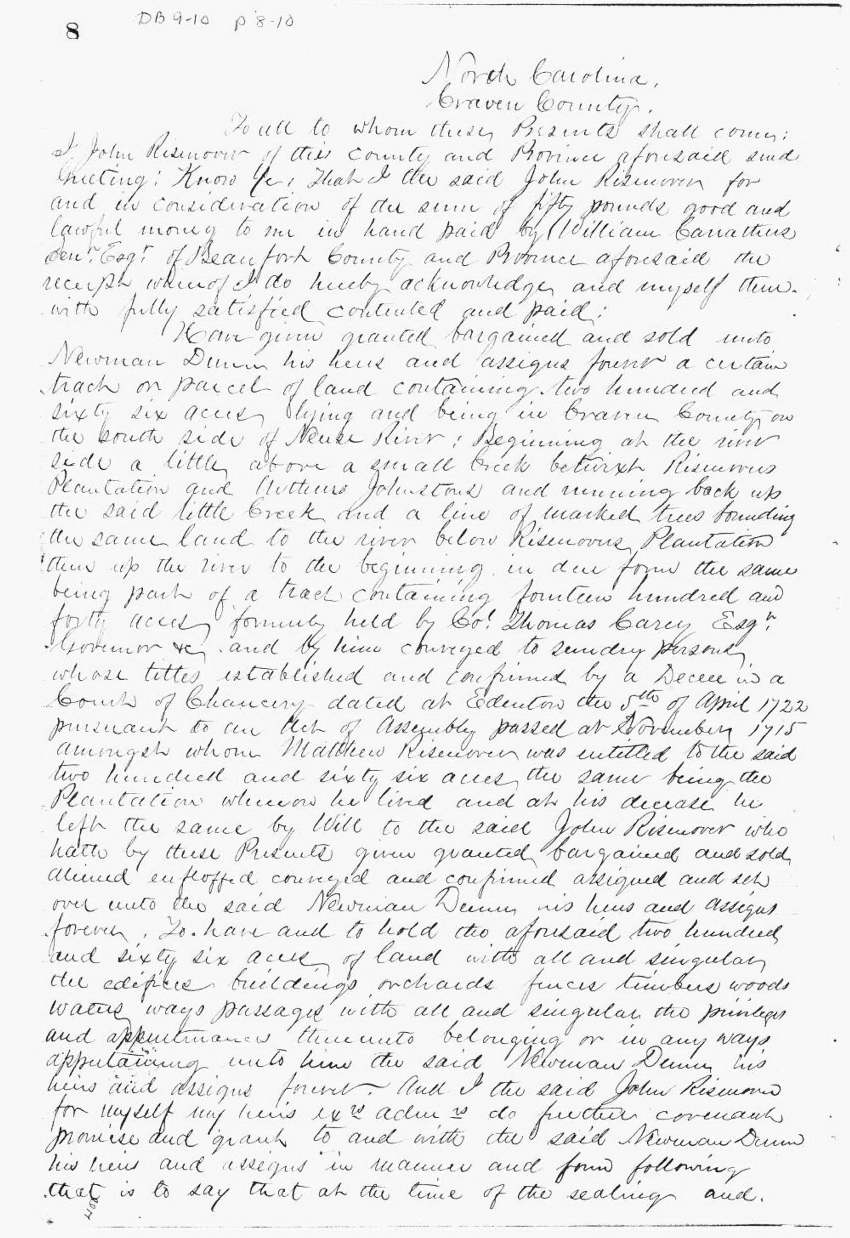 8
DB 9-10 p 8-10
North Carolina,
Craven County,
To all to whom these Presents shall come;
I John Risenover of this county and Province aforesaid send
Greeting: Know Ye, That I the said John Risenover for
and in consideration of the sum of fifty pounds good and
lawful money to me in hand paid by William Carruthers
Senr. Esqr. of Beaufort County and Province aforesaid the
receipt whereof I do hereby acknowledge and myself there-
with fully satisfied contented and paid;
Have given granted bargained and sold unto
Newman Dunn his heirs and assigns forever a certain
track or parcel of land containing two hundred and
sixty six acres, lying and being in Craven County on
the south side of Neuse River: Beginning at the river
side a little above a small Creek betwixt Risenovers
Plantation and Authurs Johnstons and running back up
the said little Creek and a line of marked trees bounding
the same land to the river below Risenovers Plantation
then up the river to the beginning in due form the same
being part of a tract containing fourteen hundred and
forty acres formerly held by Col. Thomas Carey Esqr.
Governor &c, and by him conveyed to sundry persons
whose titles established and confirmed by a Decree in a
Court of Chancery dated at Edenton the 5th of April 1722
pursuant to an Act of Assembly passed at November 1715
amongst whom Matthew Risenover was entitled to the said
two hundred and sixty six acres, the same being the
Plantation whereon he lived and at his decease he
left the same by Will to the said John Risenover who
hath by these Presents given granted bargained and sold,
aliened enfloffed conveyed and confirmed assigned and set
over unto the said Newman Dunn his heirs and assigns
forever. To have and to hold the aforesaid two hundred
and sixty six acres of land with all and singular
the edifices buildings orchards fences timbers woods
waters, ways passages with all and singular the privileges
and appurtenances thereunto belonging or in any ways
appertaining unto him the said Newman Dunn his
heirs and assigns forever. And I the said John Risenover
for myself my heirs exrs admrs do further covenant
promise and grant to and with the said Newman Dunn
his heirs and assigns in manner and form following
that is to say that at the time of the sealing and.